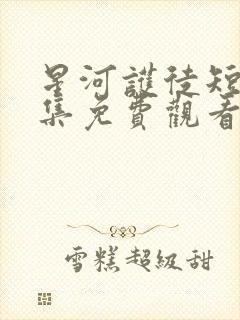 星河謢徒短
集免費觀看
雪糕超級甜